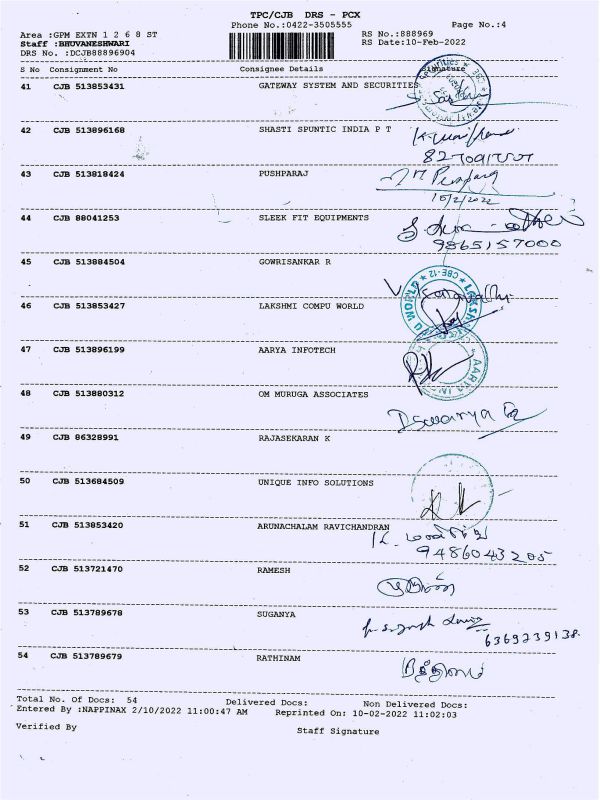 TPC/CJB DRS - PCX
Phone No.:0422-3505555 Page No.:4
Area :GPM EXTN 1 2 6 8 ST RS No.:888969
Staff :BHUVANESHWARI RS Date:10-Feb-2022
DRS No. :DCJB88896904
S No Consignment No Consignee Details Signature
41 CJB 513853431 GATEWAY SYSTEM AND SECURITIES
42 CJB 513896168 SHASTI SPUNTIC INDIA P T
43 CJB 513818424 PUSHPARAJ
10/2/2022
44 CJB 88041253 SLEEK FIT EQUIPMENTS
9865157000
45 CJB 513884504 GOWRISANKAR R
46 CJB 513853427 LAKSHMI COMPU WORLD
47 CJB 513896199 AARYA INFOTECH
48 CJB 513880312 OM MURUGA ASSOCIATES
49 CJB 86328991 RAJASEKARAN K
50 CJB 513684509 UNIQUE INFO SOLUTIONS
51 CJB 513853420 ARUNACHALAM RAVICHANDRAN
9486043205
52 CJB 513721470 RAMESH
53 CJB 513789678 SUGANYA
6369239138
54 CJB 513789679 RATHINAM
Total No. Of Docs: 54 Delivered Docs: Non Delivered Docs:
Entered By :NAPPINAX 2/10/2022 11:00:47 AM Reprinted On: 10-02-2022 11:02:03
Verified By Staff Signature